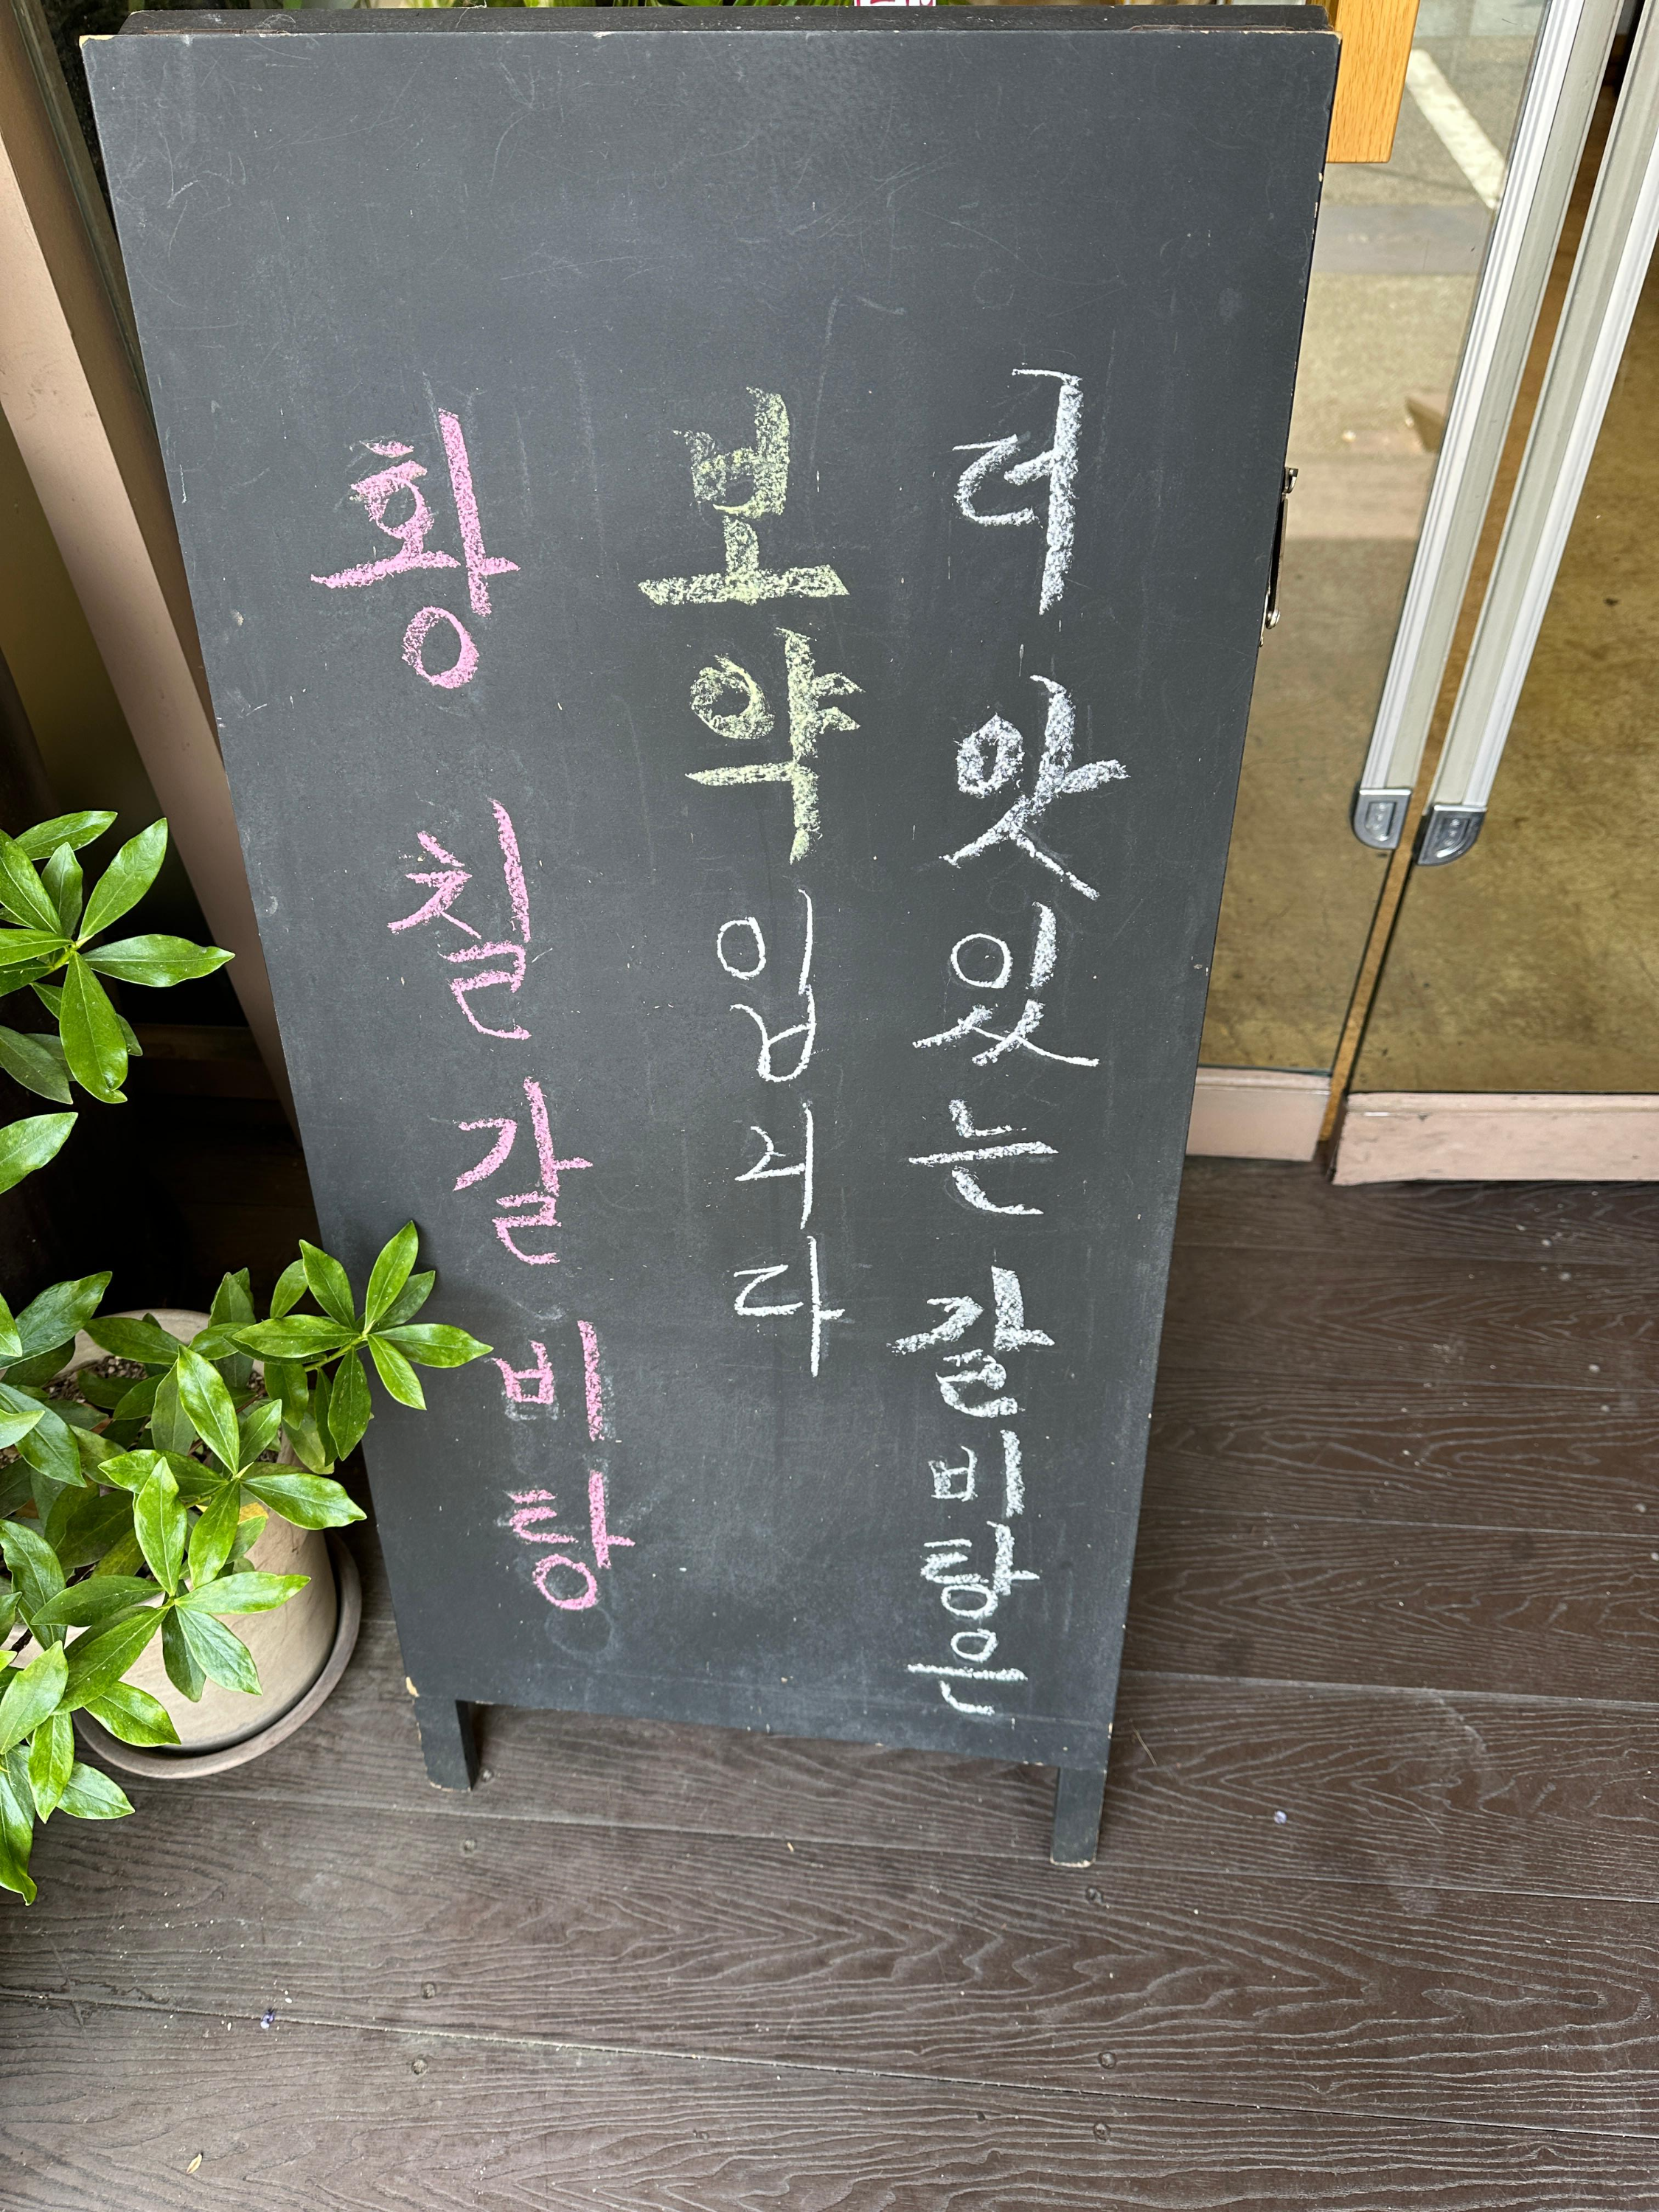 더 맛있는 갈비탕은
보약입니다
황칠갈비탕